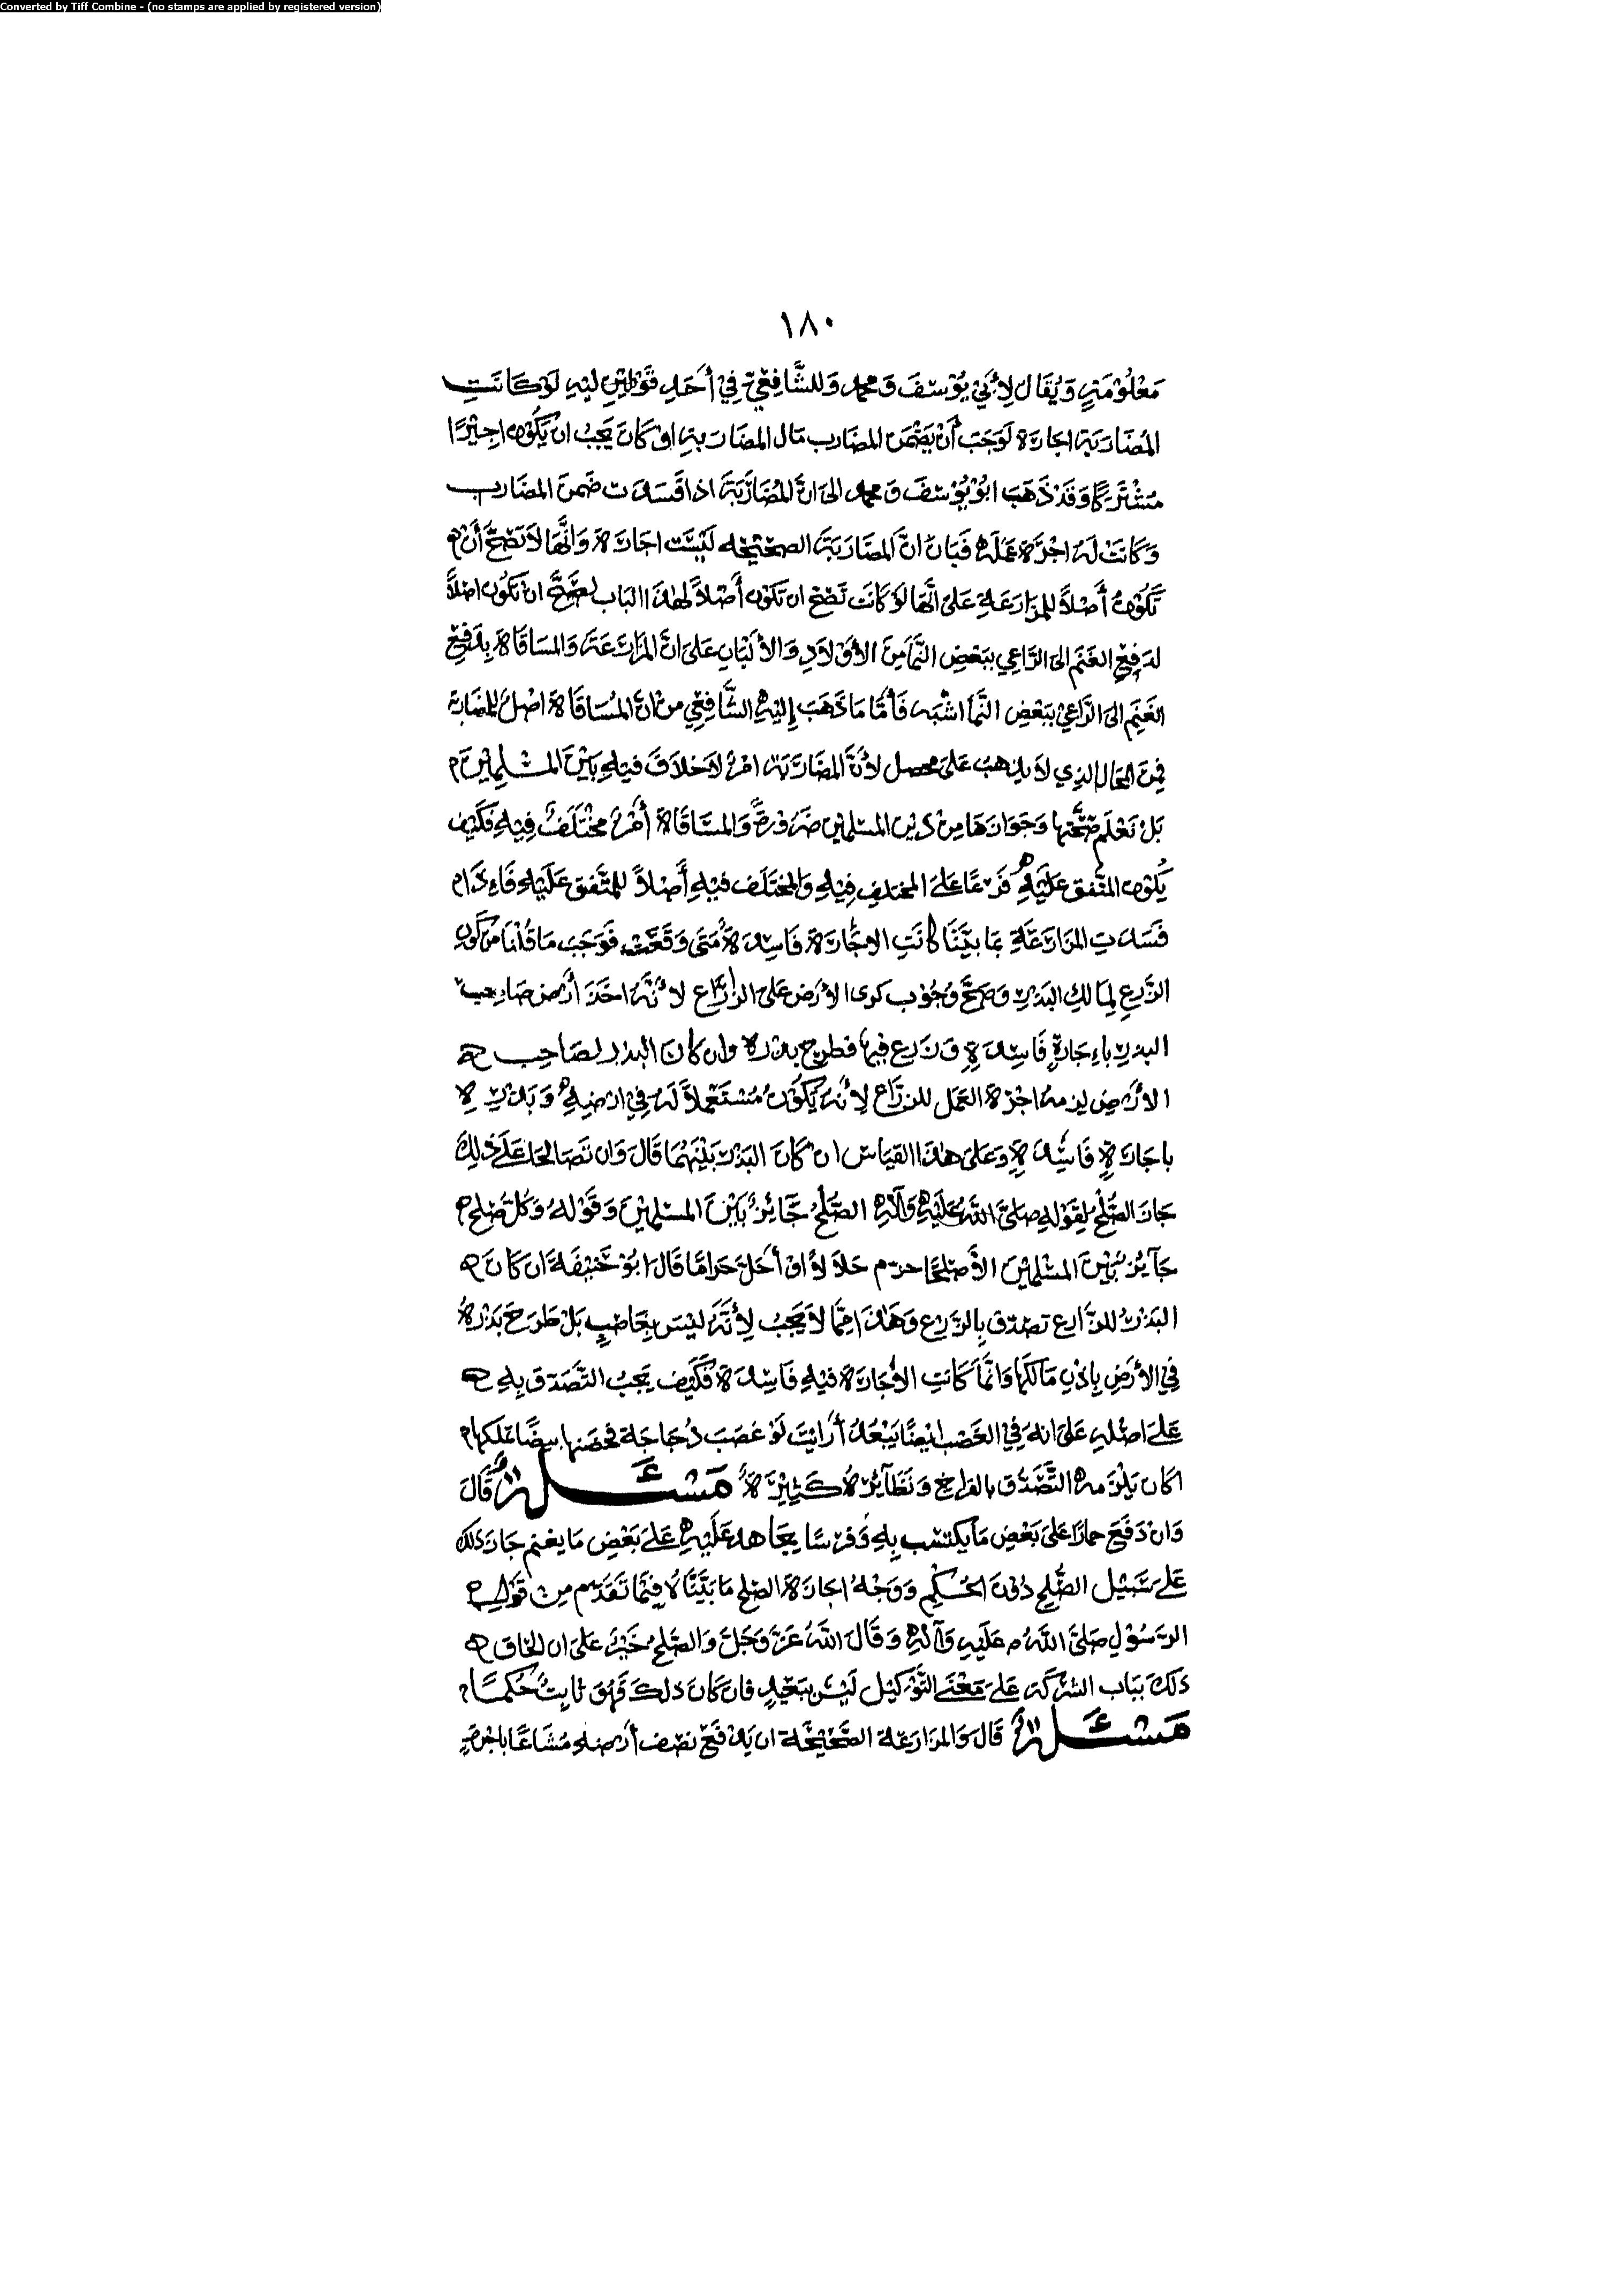 Converted by Tiff Combine - (no stamps are applied by registered version)
١٨٠
مَعْلُوْمَةٍ وَيُقَال لِأَبِي يُوْسُفَ وَمحمد وَللشَّافِعِيّ فِيْ أَحَدِ قَوْلَيْهِ لَوْ كَانَتِ
المُضَارَبَة اجارة لَوَجَبَ أَنْ يَضْمَنَ المضارب مَال المضَارَبةِ اوْ كَانَ يَجبُ انْ يَكُوْنَ اجِيْرًا
مُشْتَرَكًا وَقَدْ ذَهَبَ ابُوْ يُوْسُفَ وَمحمد الى انَّ المُضَارَبَةَ اذا فَسَدَت ضَمنَ المضَارب
وَكَانَتْ لَهُ اجْرَة عَمَلَهُ فَبَانَ انَّ المضَارَبَة الصحِيْحه لَيْسَت اجَارَة وَانَّهَا لَا تَصْحّ أَنْ
تَكُوْنَ أَصْلاً للمزَارَعَةِ عَلَى انَّهَا لَوْ كَانَت تَصْحّ ان تَكوْن أَصْلاً لهذا الباب لصَحَّ انْ تكُوْن اصْلاً
لدَفعِ الغَنَم الى الرَّاعِي ببَعْضِ النَّمَا مِنَ الأَوْلَادِ وَالأَلْبَانِ عَلَى انَّ المزَارَعَةَ وَالمسَاقَاة بِدَفعِ
الغَنِم الى الرَّاعِيْ ببَعْضِ النَّمَا اشْبَه فَأَمَّا مَا ذَهَبَ إِلَيْهِ الشَّافِعِي من انَّ المُسَاقَاة اصْلُ للمضاربة
فمِنَ المحَال الذِي لَا يذهبُ عَلى محصل لأَنَّ المضَارَبَة امْرُ لَا خلَافَ فيْهِ بَيْنَ المُسْلِمِيْنَ
بَلْ نَعْلَم صِحَّتها وَجَوَازهَا مِنْ دِيْن المسْلمِيْن ضَرُوْرَةً وَالمسَاقَاة أَمْرُ مخْتَلَفُ فِيْهِ فَكَيْفَ
يَكُوْن المتَّفق عَلَيْهِ فَرْعًا عَلَى المختلَفِ فِيْهِ وَالمخْتَلَف فيْهِ أَصْلاً للمتَّفق عَلَيْهِ فَاِذَا
فَسَدَتِ المزَارَعَة بمَا بيَّنَّا كَانَتِ الاجَارَة فَاسِدَةً مَتَى وَقَعَتْ فَوَجَبَ مَا قُلْنَا مِنْ كَوْنِ
الزَّرعِ لمَالكِ البَذْرِ وَصَحَّ وُجُوْب كرى الأرْض عَلى الزَّارِع لأَنَّهُ اخَذَ أَرْضَ صَاحِب
البذرِ باِجَارَةٍ فَاسِدَةٍ وَزَرَع فِيهَا فطرح بذْرَهُ وان كَانَ البذر لصَاحِب
الأرْضِ لزمهُ اجْرَة العَمَل للزَّارِعِ لِأَنَّهُ يَكُوْنُ مُسْتَعْملاً لَهُ فِيْ ارْضِهِ وَبَذْرِهِ
باجَارَةٍ فَاسِدَةٍ وَعَلَى هٰذَا القيَاس انْ كَانَ البَذْرُ بَيْنَهُمَا قَالَ وَان تَصَالحَا عَلَى ذٰلِكَ
جَازَ الصُّلْحُ لِقَوْلِهِ صَلَّى اللهُ عَلَيْهِ وَآلهِ الصُّلْحُ جَائزُ بَيْنَ المسْلِمِيْنَ وَقَوْلهُ وَكُلّ صُلحٍ
جَآيُز بَيْنَ المسْلِمِيْنَ الاَّ صُلْحًا حرّم حَلَالاً اوْ أَحَلّ حَرَامًا قَالَ ابُوْ حَنِيْفَة ان كَانَ
البَذْرُ للزَّارِع تصَدّق بِالزَّرع وَهٰذَا ممَّا لَا يَجبُ لِأَنَّهُ ليْسَ بغَاصِبٍ بَلْ طَرَحَ بَذْرَهُ
فِي الأرْضِ بِاذْنِ مَالكهَا وَانَّمَا كَانَتِ الاجَارَة فيْهِ فَاسِدَة فَكَيْفَ يَجبُ التَّصَدق بِهِ
عَلَى اصْلهِ عَلَى انهُ فِيْ الغَصْب ايْضًا يَبْعُدُ أَرَايْتَ لَوْ غصَبَ دُجَاجَة فحضنها بيضًا يملكها
اكَان يَلْزَمه التَّصَدُّق بالفراخ وَنَظَآئِرهُ كَثِيْرَةُ مَسْئَلةٌ قَالَ
وَانْ دَفَعَ حمارًا عَلَى بَعْضِ مَا يَكتَسب بِهِ وَفرسًا يجاهد عَلَيْهِ عَلَى بَعْض مَا يغنم جَازَ ذٰلكَ
عَلَى سَبِيْل الصُّلحِ دُوْنَ الحُكْمِ وَوَجْهُ اجَازَة الصّلح مَا بَيَّنَّاهُ فِيْمَا تَقَدّم مِنْ قَوْلِ
الرَّسُوْلِ صَلَّى اللهُ عَلَيْهِ وَآلهِ وَقَالَ اللهُ عَزَّ وَجَلّ وَالصّلحُ خَيْرُ عَلَى ان الحَاق
ذلكَ ببَاب الشرْكَة عَلَى مَعْنَى التَّوْكيْل لَيْسَ ببَعِيْدٍ فان كَانَ ذلكَ فَهُوَ ثَابِتُ حُكمًا
مَسْئَلةٌ قَالَ وَالمزَارَعَة الصَّحِيْحَة ان يدْفَع نصْف أَرْضهِ مُشَاعًا باجْرَةٍ